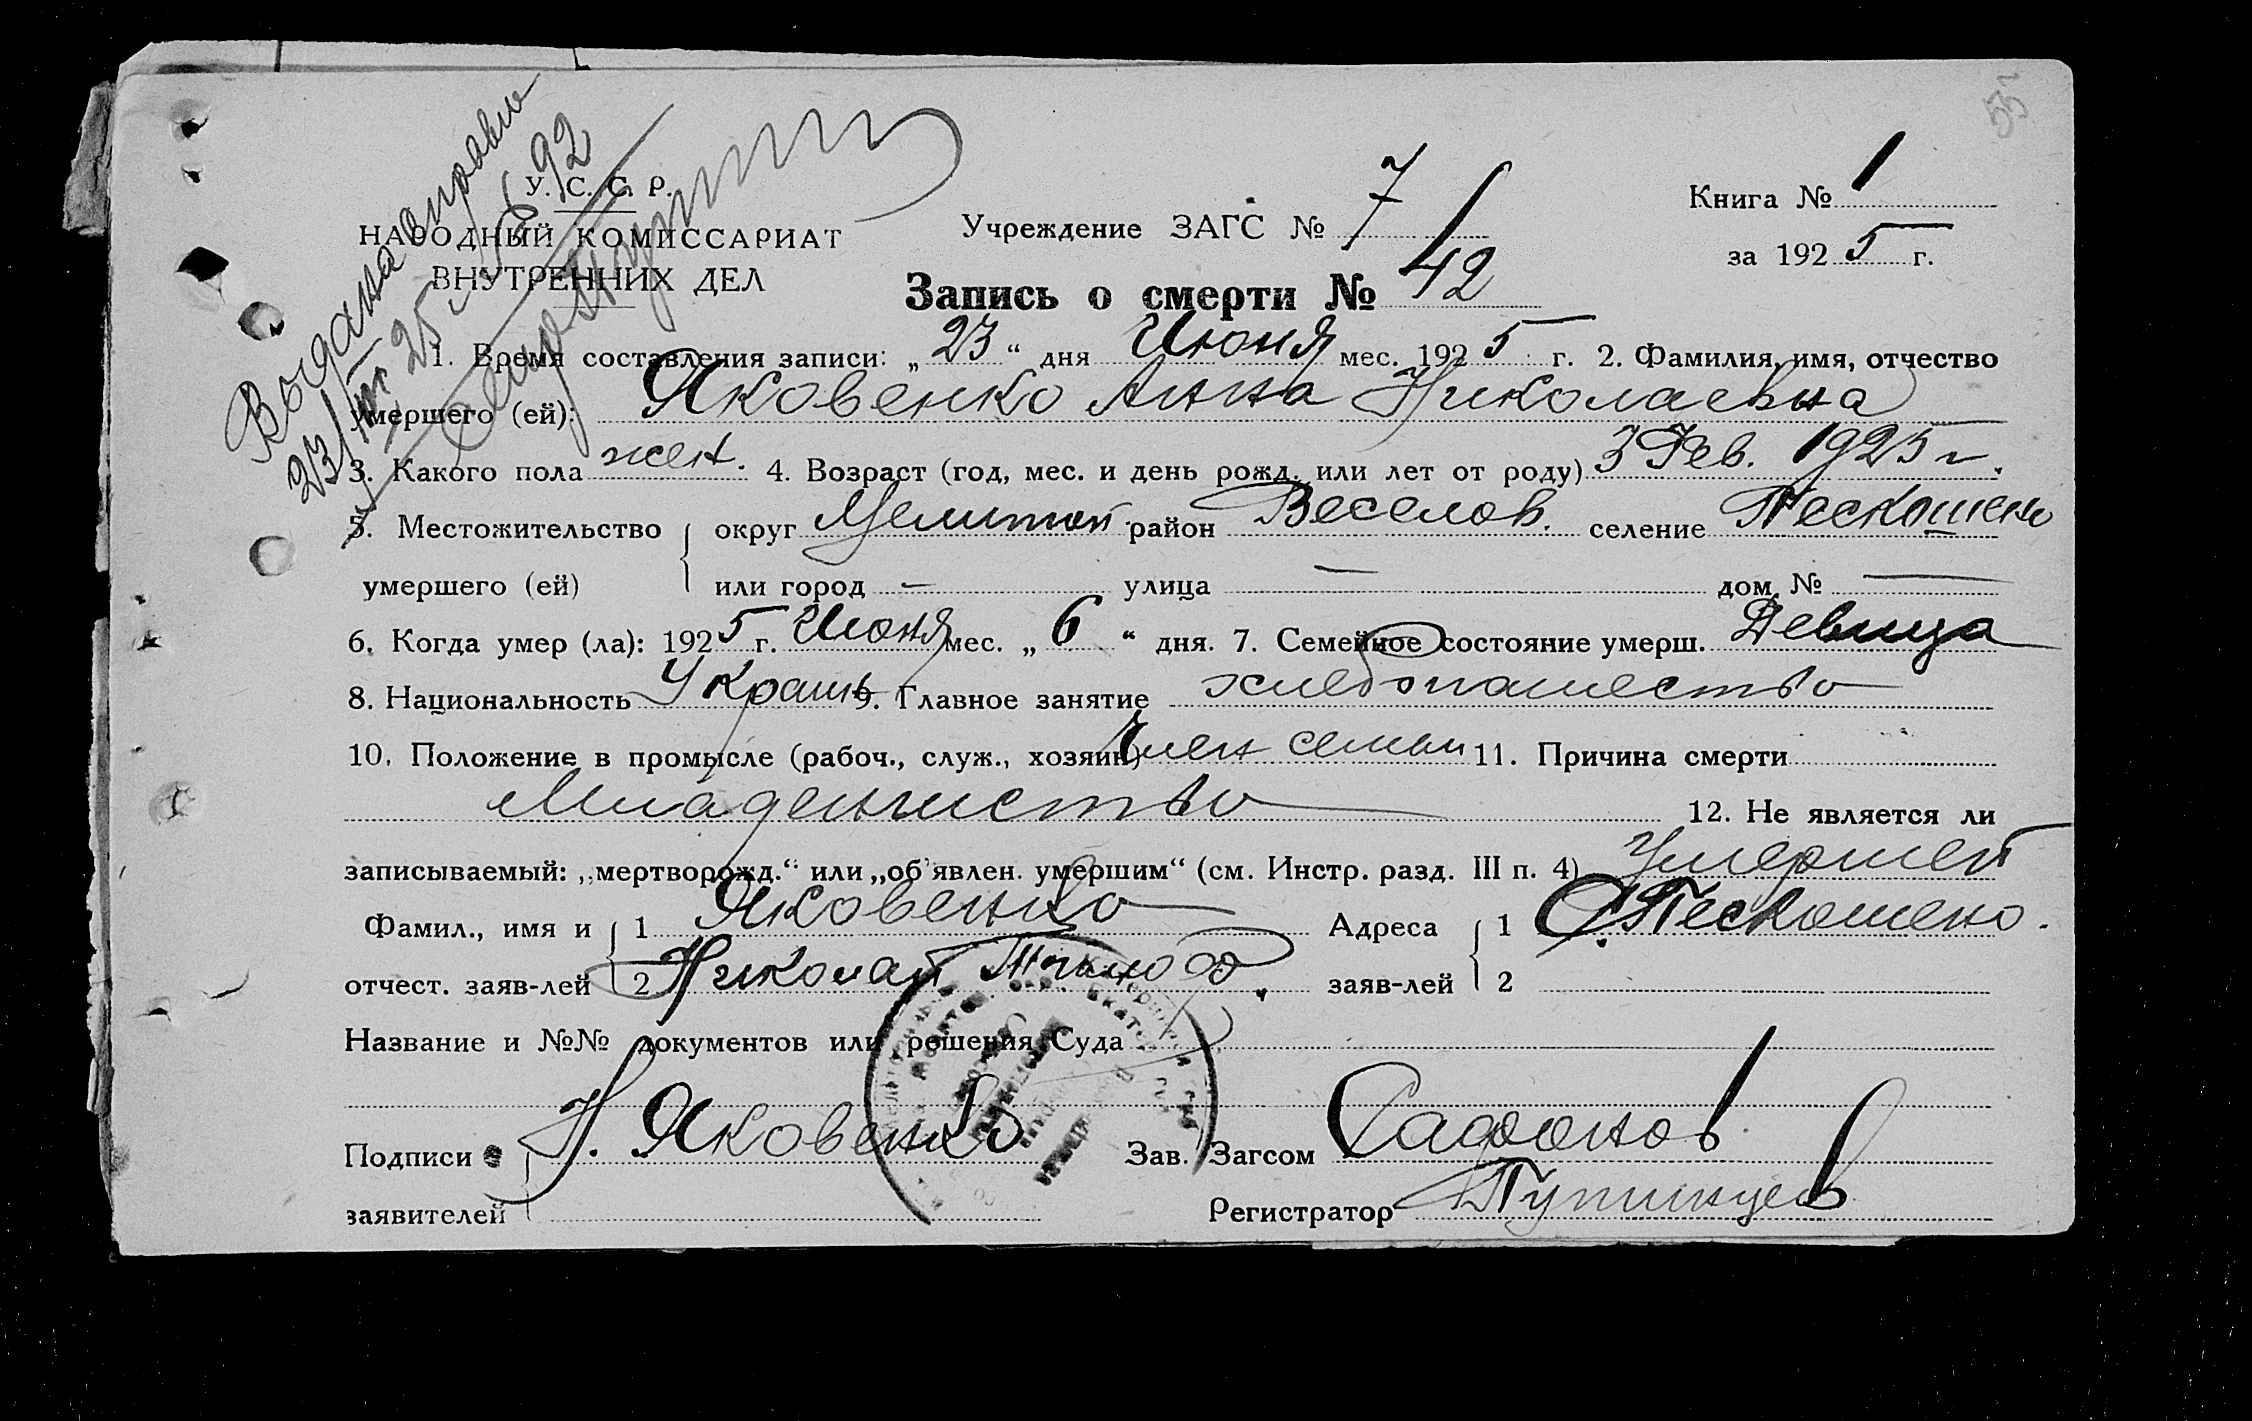 55
Выдана справка
23/VI 25 г. № 92
У. С. С. Р.
НАРОДНЫЙ КОМИССАРИАТ
ВНУТРЕННИХ ДЕЛ
Учреждение ЗАГС № 7
Книга № 1
за 1925 г.
Запись о смерти № 42
1. Время составления записи: „23“ дня Июня мес. 1925 г. 2. Фамилия, имя, отчество
умершего (ей): Яковенко Анна Николаевна
3. Какого пола жен. 4. Возраст (год, мес. и день рожд. или лет от роду) 3 Фев. 1925 г.
5. Местожительство округ Мелитоп. район Веселов. селение Пескошено
умершего (ей) или город — улица — дом № —
6. Когда умер (ла): 1925 г. Июня мес. „6“ дня. 7. Семейное состояние умерш. Девица
8. Национальность Украин. 9. Главное занятие хлебопашество
10. Положение в промысле (рабоч., служ., хозяин) Член семьи 11. Причина смерти
Младенчество 12. Не является ли
записываемый: „мертворожд.“ или „об'явлен. умершим“ (см. Инстр. разд. III п. 4) Умершей
Фамил., имя и 1 Яковенко Адреса 1 С. Пескошено.
отчест. заяв-лей 2 Николай заяв-лей 2
Название и №№ документов или решения Суда
Подписи Н. Яковенко Зав. Загсом Сафонов
заявителей Регистратор